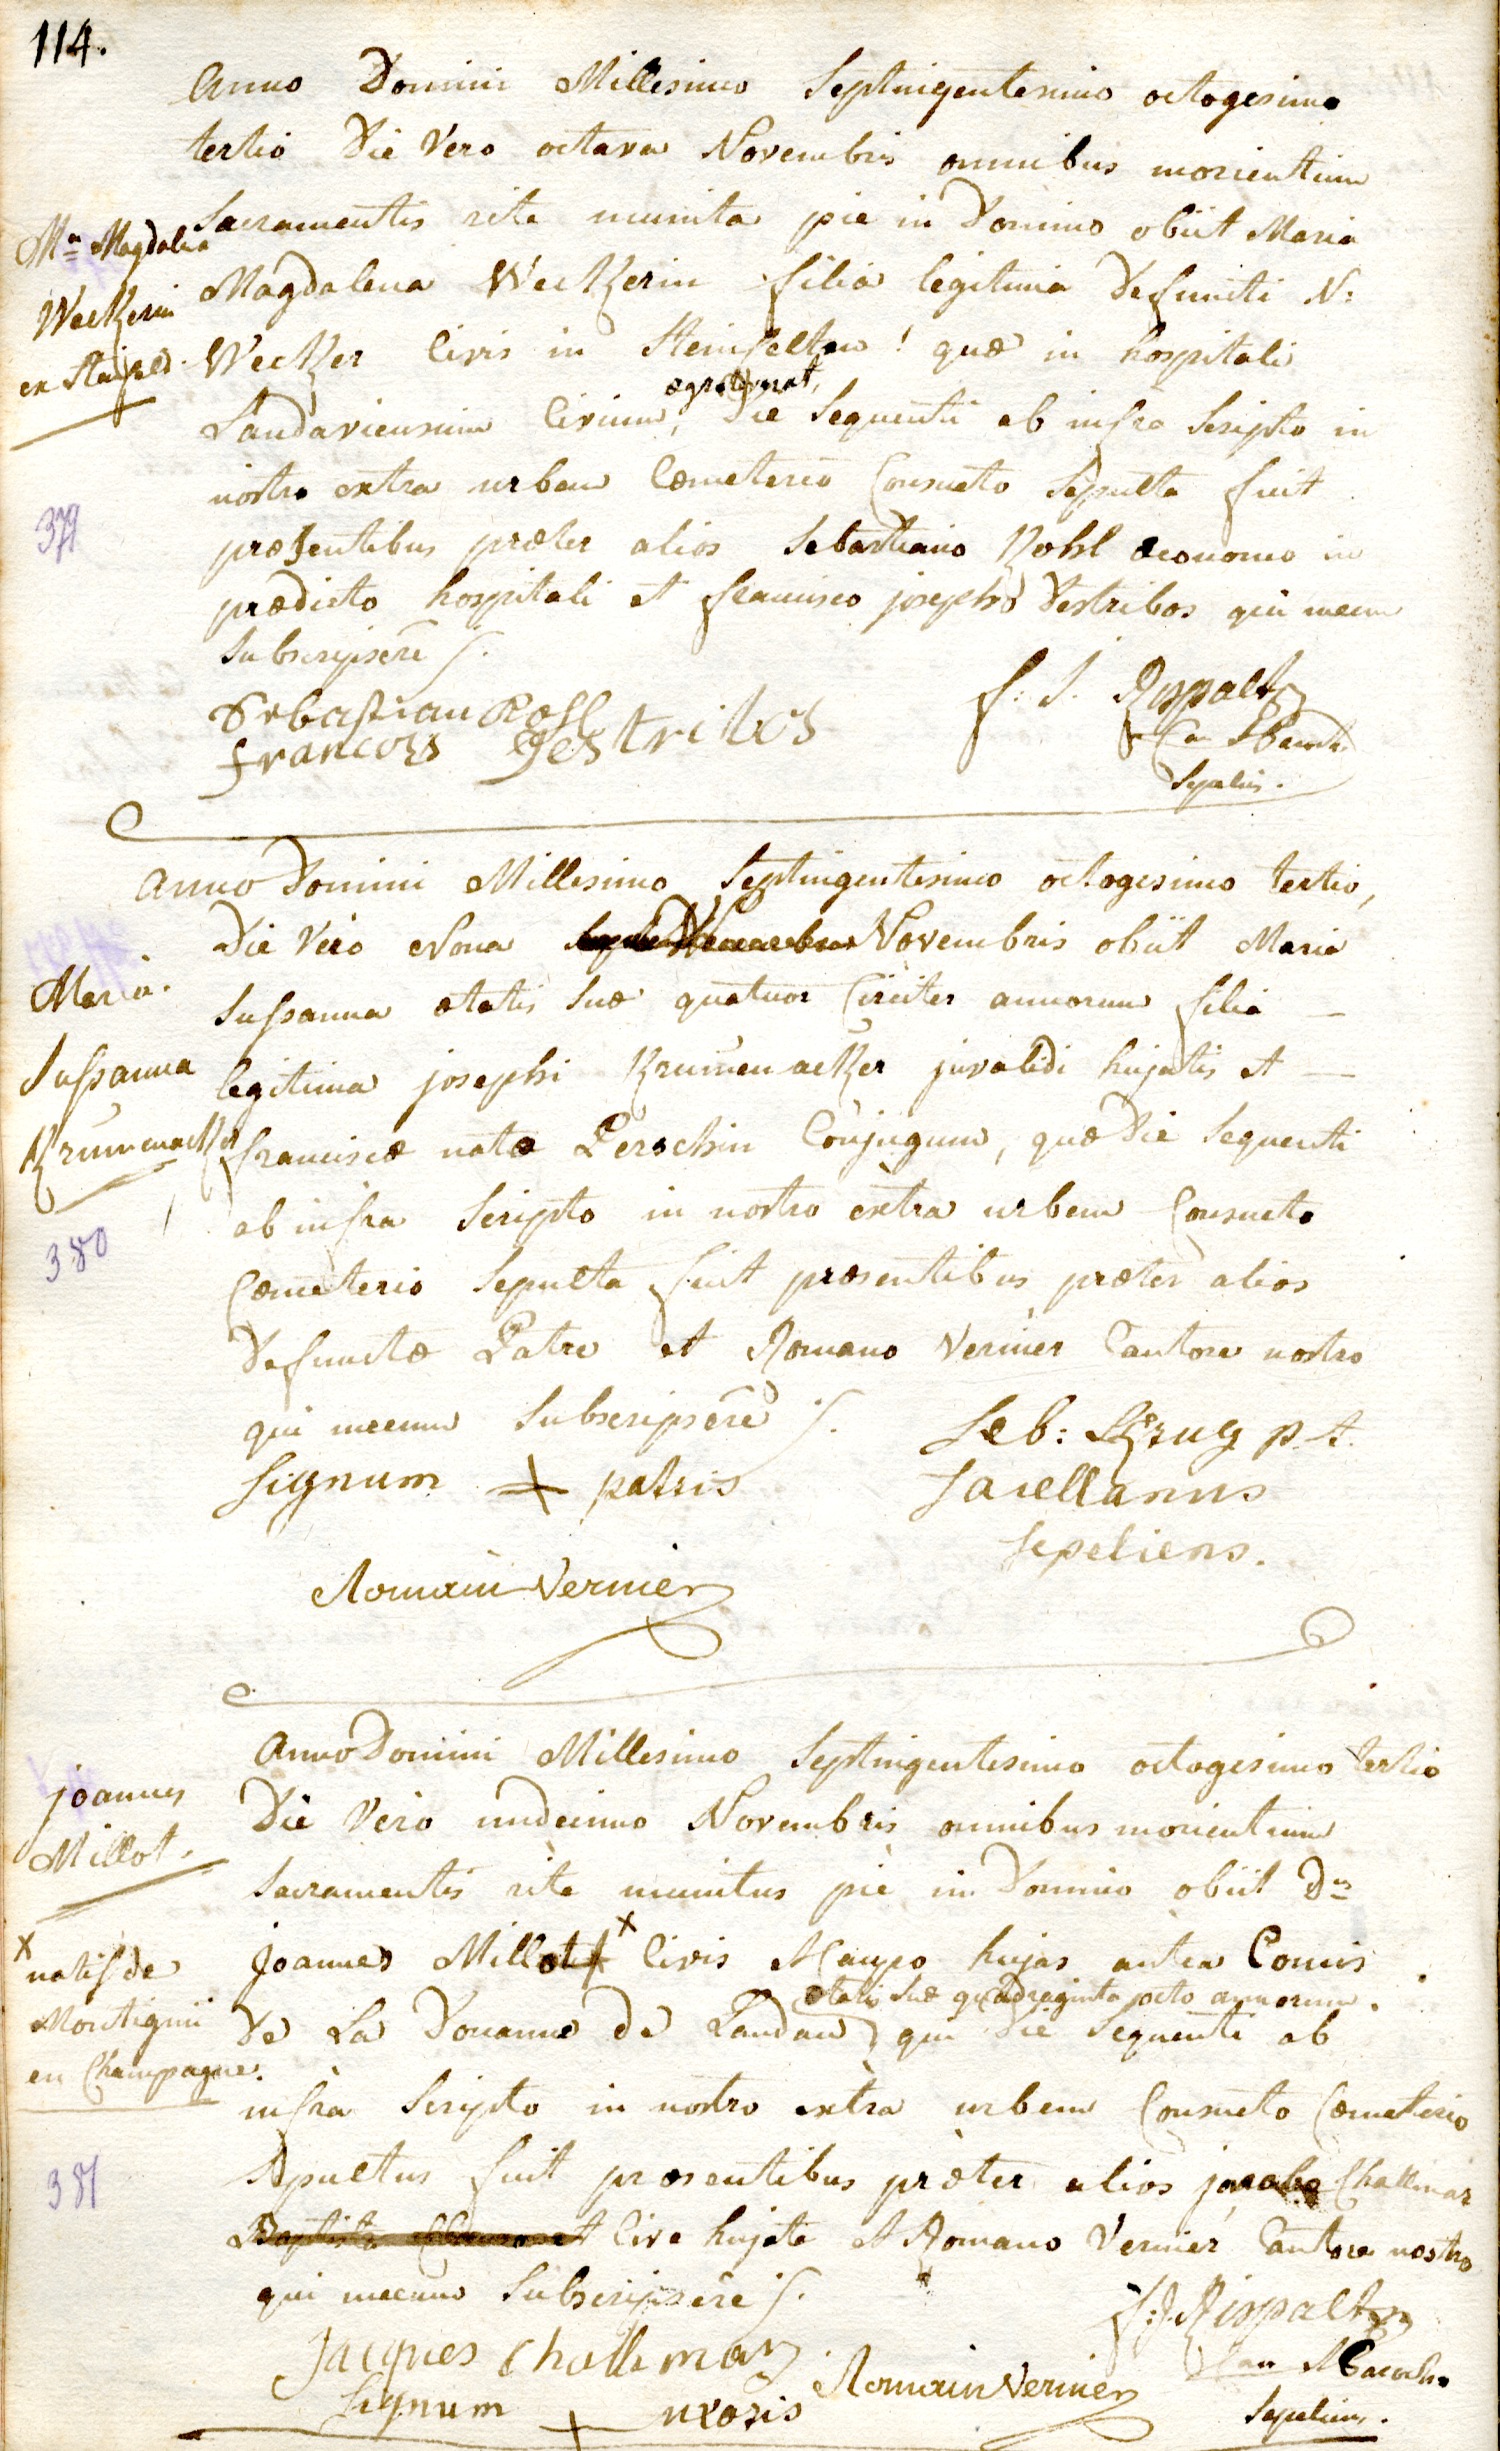 114.
Anno Domini Millesimo Septingentesimo octogesimo
tertio Die Vero octava Novembris omnibus morientium
Sacramentis rite munita pie in Domino obiit Maria
Ma Magdalea
Magdalena Weckerin filia legitima Defuncti N:
Weckerin
Wecker Civis in Steinfelten! quæ in hospitali
ex Steinfeld.
ægrotaverat,
Landaviensium Civium, Die Sequenti ab infra Scripto in
nostro extra urbem Cœmeterio Consueto Sepulta fuit
379
præsentibus præter alios Sebastiano Kohl œconomo in
prædicto hospitali et francisco josepho Destribos qui mecum
Subscripsere
Sebastian Kohl
francois Destribos
f. J. Rispaltz
Can
Sepeliens.
Anno Domini Millesimo Septingentesimo octogesimo tertio,
Die Vero Nona Novembris obiit Maria
Maria
Sussanna ætatis Suæ quatuor Circiter annorum filia
Sussanna
legitima josephi Krummenacker jnvalidi hujatis et
Krummenacker
franciscæ natæ Perschin Conjugum, quæ Die Sequenti
ab infra Scripto in nostro extra urbem Consueto
380
Cœmeterio Sepulta fuit præsentibus præter alios
Defunctæ Patre et Romano Vernier Cantore nostro
qui mecum Subscripsere
Seb: Krug p.t.
Signum + patris
Sacellanus
Sepeliens.
Romain Vernier
Anno Domini Millesimo Septingentesimo octogesimo tertio
joannes
Die Vero undecimo Novembris omnibus morientium
Millot.
Sacramentis rite munitus pie in Domino obiit Dnus
x
natif de
Joannes Millot x Civis hujas antea Comis
Montigni
ætatis Suæ quadraginta octo annorum.
De La Douanne de Landau, qui Die Sequenti ab
en Champagne.
infra Scripto in nostro extra urbem Consueto Cœmeterio
381
Sepultus fuit præsentibus præter alios jacobo Challimar
Baptista Cive hujate et Romano Vernier Cantore nostro
qui mecum Subscripsere
f. J. Rispaltz
Jacques Challimar
Romain Vernier
Can
Signum + uxoris
Sepeliens.